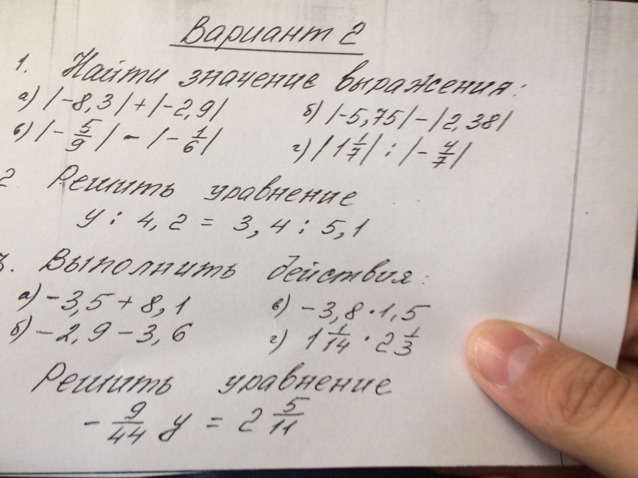 Вариант 2
1. Найти значение выражения:
а) |-8,3|+|-2,9| б) |-5,75|-|2,38|
в) |-5/9| - |-1/6| г) |1 1/7| : |-4/7|
2. Решить уравнение
у : 4,2 = 3,4 : 5,1
3. Выполнить действия:
а) -3,5 + 8,1 в) -3,8 · 1,5
б) -2,9 - 3,6 г) 1 1/14 · 2 1/3
Решить уравнение
- 9/44 у = 2 5/11